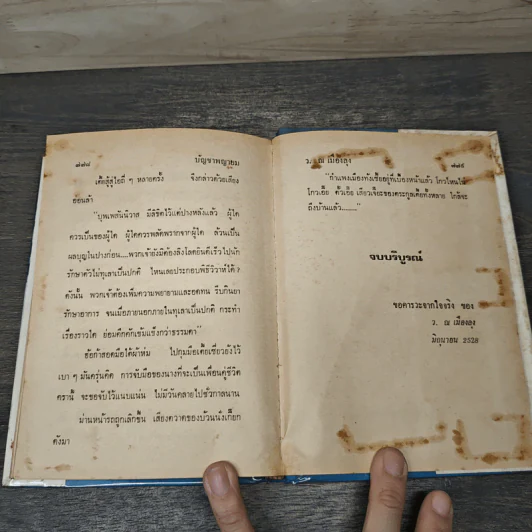 ๗๗๘
บัญชาพญายม
เค้กสู้สู่ไอถี่ ๆ หลายครั้ง จึงกล่าวด้วยเสียง
อ่อนล้า
"บุพเพสันนิวาส มีลิขิตไว้แต่ปางหลังแล้ว ผู้ใด
ควรเป็นของผู้ใด ผู้ใดควรพลัดพรากจากผู้ใด ล้วนเป็น
ผลบุญในปางก่อน....พวกเจ้ายังมิต้อง
รักษาตัวไม่ทุเลาเป็นปกติ ไหนเลยประกอบพิธีวิวาห์ได้?
ดังนั้น พวกเจ้าต้องเพิ่มความพยายามและอดทน รีบกินยา
รักษาอาการ จนเมื่อภายนอกภายในทุเลาเป็นปกติ กระทำ
เรื่องราวใด ย่อมคึกคักเข้มแข็งกว่าธรรมดา"
ฮ้อก้ำสอดมือใต้ผ้าห่ม ไปกุมมือเตี้ยเซี่ยวยังไว้
เบา ๆ มันครุ่นคิด การจับมือของนางที่จะเป็นเพื่อนคู่ชีวิต
ครานี้ จะขอจับไว้แนบแน่น ไม่มีวันคลายไปชั่วกาลนาน
ม่านหน้ารถถูกเลิกขึ้น เสียงตวาดของบ้วนนั่งเกี๊ยก
ดังมา
ว. ณ เมืองลุง
๗๗๙
"กำแพงเมืองทั้งเซี้ยอยู่เบื้องหน้าแล้ว โกวไหน
โกวเอี๊ย ตั่วเอี๊ย เถียวเจ็งะของตระกูลเตียทั้งหลาย ใกล้จะ
ถึงบ้านแล้ว........"
จบบริบูรณ์
ขอคารวะจากใจจริง ของ
ว. ณ เมืองลุง
มิถุนายน 2528